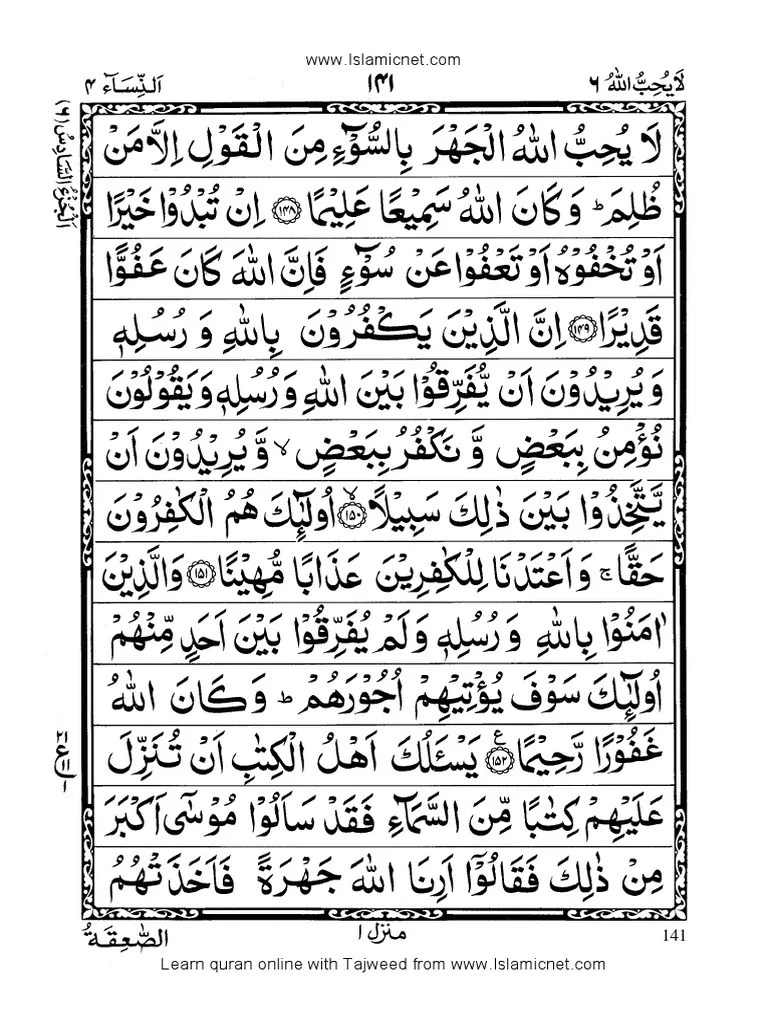 www.Islamicnet.com
لَا يُحِبُّ اللهُ ٦
١٤١
اَلنِّسَآء ٤
اَلْجُزْءُ السَّادِسُ (٦)
لَا يُحِبُّ اللهُ الْجَهْرَ بِالسُّوْٓءِ مِنَ الْقَوْلِ اِلَّا مَنْ
ظُلِمَ ؕ وَ كَانَ اللهُ سَمِيْعًا عَلِيْمًا ﴿۱۴۸﴾ اِنْ تُبْدُوْا خَيْرًا
اَوْ تُخْفُوْهُ اَوْ تَعْفُوْا عَنْ سُوْٓءٍ فَاِنَّ اللهَ كَانَ عَفُوًّا
قَدِيْرًا ﴿۱۴۹﴾ اِنَّ الَّذِيْنَ يَكْفُرُوْنَ بِاللهِ وَ رُسُلِهٖ
وَيُرِيْدُوْنَ اَنْ يُّفَرِّقُوْا بَيْنَ اللهِ وَ رُسُلِهٖ وَيَقُوْلُوْنَ
نُؤْمِنُ بِبَعْضٍ وَّ نَكْفُرُ بِبَعْضٍ ۙ وَّ يُرِيْدُوْنَ اَنْ
يَّتَّخِذُوْا بَيْنَ ذٰلِكَ سَبِيْلًا ﴿۱۵۰﴾ ۙ اُولٰٓئِكَ هُمُ الْكٰفِرُوْنَ
حَقًّا ۚ وَ اَعْتَدْنَا لِلْكٰفِرِيْنَ عَذَابًا مُّهِيْنًا ﴿۱۵۱﴾ وَالَّذِيْنَ
اٰمَنُوْا بِاللهِ وَ رُسُلِهٖ وَلَمْ يُفَرِّقُوْا بَيْنَ اَحَدٍ مِّنْهُمْ
اُولٰٓئِكَ سَوْفَ يُؤْتِيْهِمْ اُجُوْرَهُمْ ؕ وَ كَانَ اللهُ
غَفُوْرًا رَّحِيْمًا ﴿۱۵۲﴾ ع يَسْـَٔلُكَ اَهْلُ الْكِتٰبِ اَنْ تُنَزِّلَ
عَلَيْهِمْ كِتٰبًا مِّنَ السَّمَآءِ فَقَدْ سَاَلُوْا مُوْسٰٓى اَكْبَرَ
مِنْ ذٰلِكَ فَقَالُوْٓا اَرِنَا اللهَ جَهْرَةً فَاَخَذَتْهُمُ
141
منزل ١
الصّٰعِقَةُ
Learn quran online with Tajweed from www.Islamicnet.com